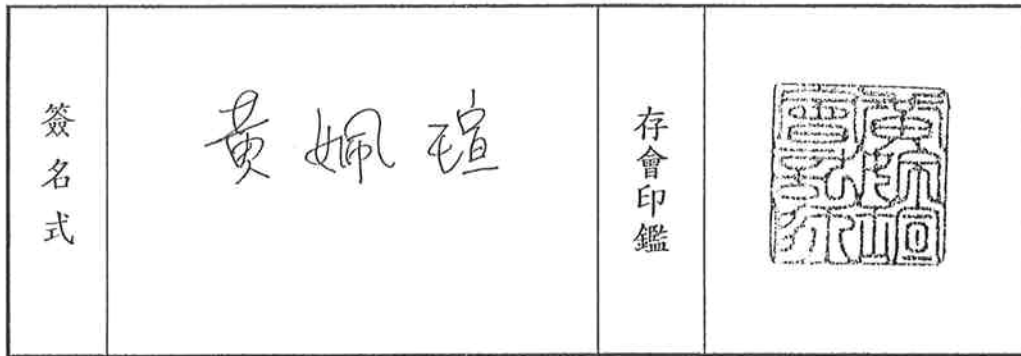 簽名式
黃姵瑄
存會印鑑